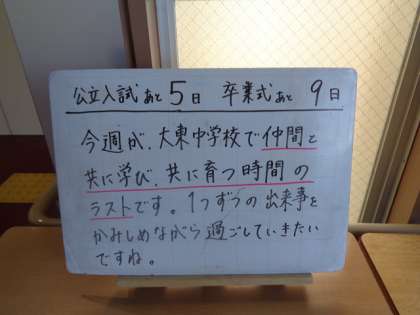 公立入試あと5日 卒業式あと 9日
今週が、大東中学校で仲間と
共に学び、共に育つ時間の
ラストです。1つずつの出来事を
かみしめながら過ごしていきたい
ですね。